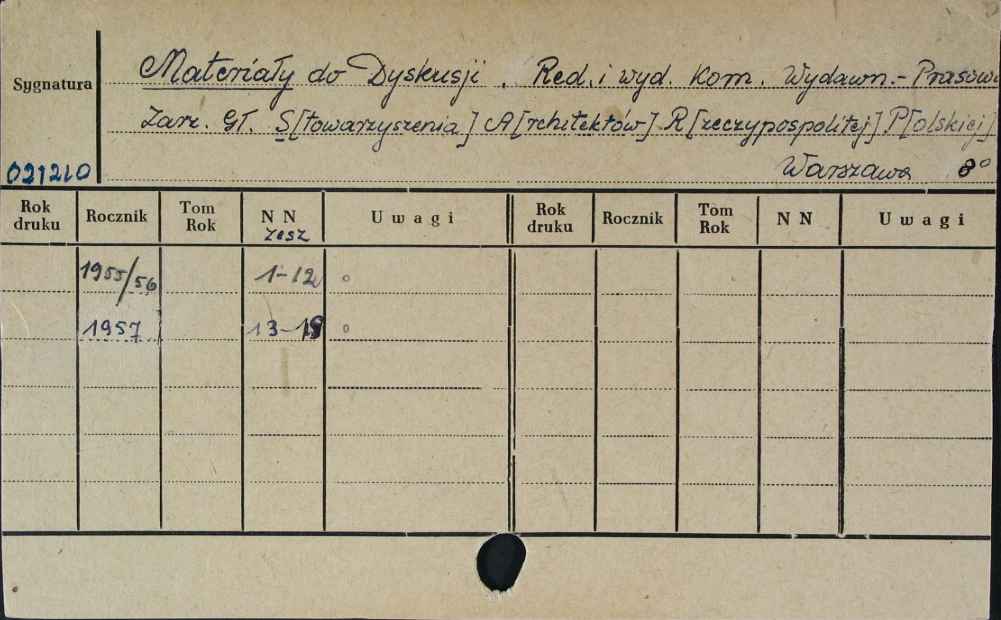 Sygnatura
Materiały do Dyskusji. Red. i wyd. Kom. Wydawn.-Prasowa
Zarz. Gł. S[towarzyszenia] A[rchitektów] R[zeczypospolitej] P[olskiej]
021210 Warszawa 8°
Rok druku Rocznik Tom Rok NN zesz Uwagi Rok druku Rocznik Tom Rok NN Uwagi
1955/56 1-12 °
1957 °